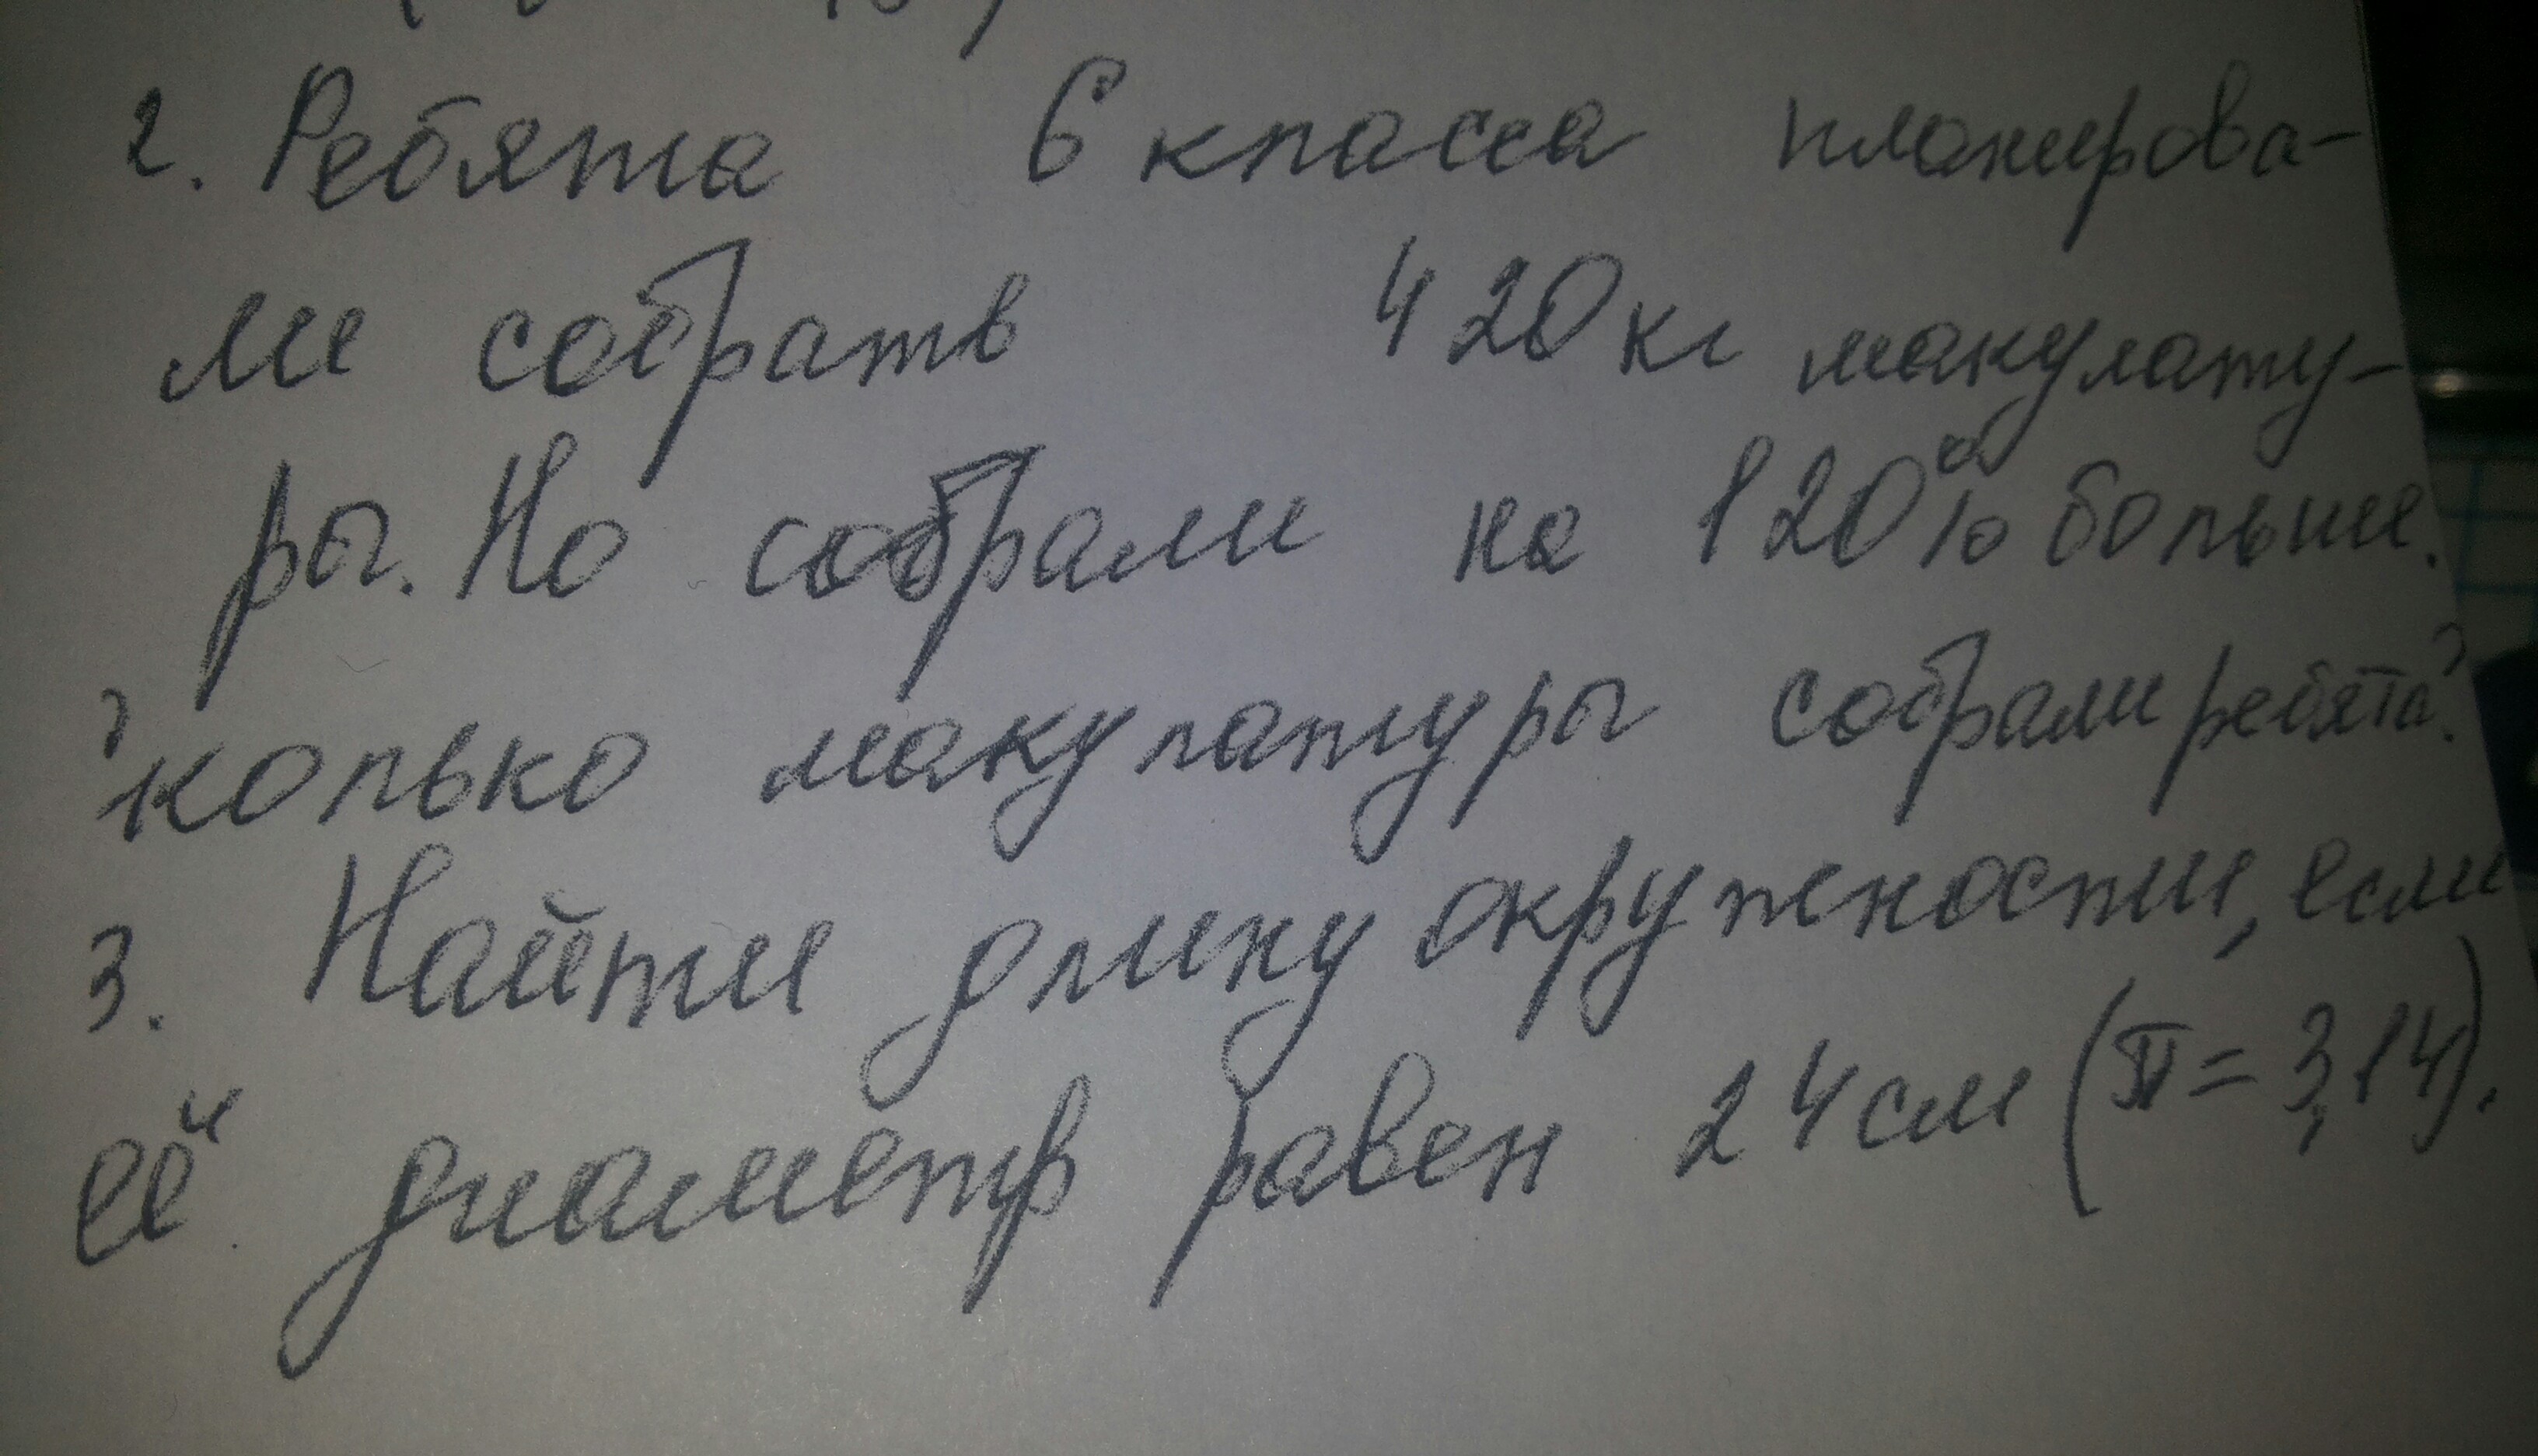 2. Ребята 6 класса планирова-
ли собрать 420 кг макулату-
ры. Но собрали на 120% больше.
Сколько макулатуры собрали ребята?
3. Найти длину окружности, если
её диаметр равен 24 см (π = 3,14).